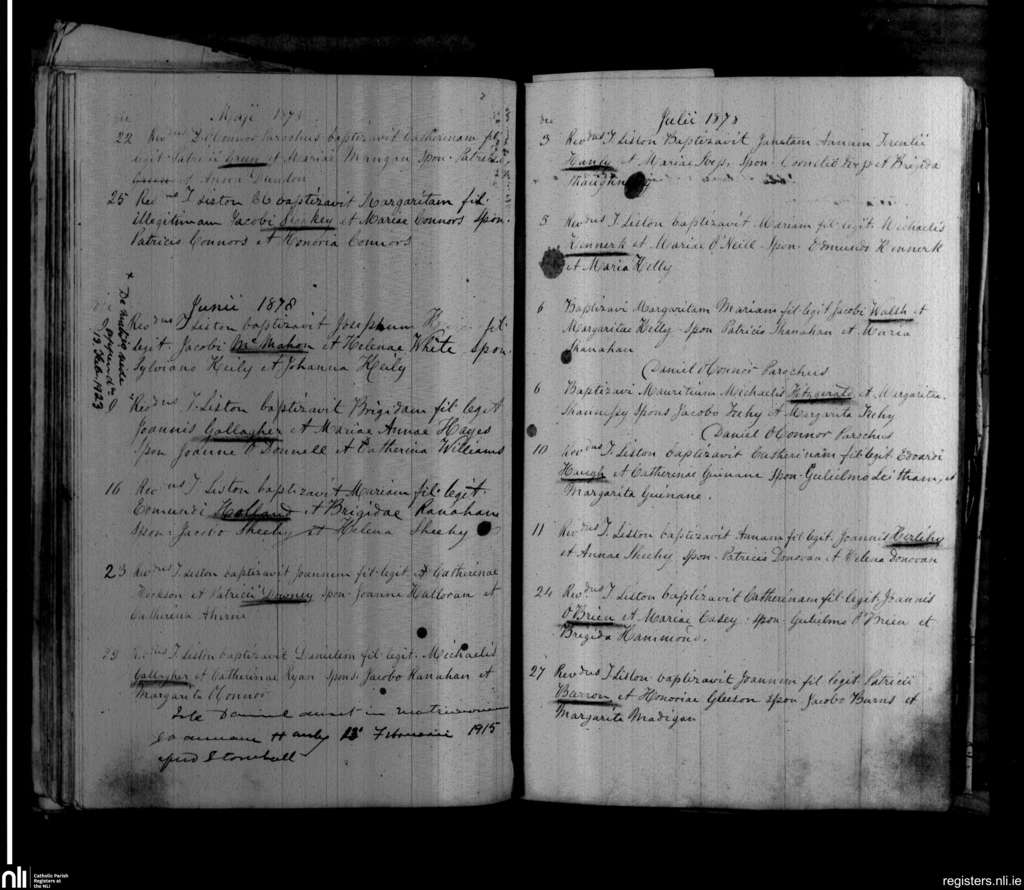 die Maji 1878
22 Revdus D. O'Connor Parochus baptizavit Catherinam fil
legit Patricii et Mariae Mangan Spon. Patricio
et Anna Dundon
25 Revdus T Liston CC baptizavit Margaritam fil.
illegitimam Jacobi et Mariae Connors Spon.
Patricio Connors et Honoria Connors
Junii 1878
Revdus T Liston baptizavit Josephum fil.
legit. Jacobi McMahon et Helenae White Spon.
Sylviano Heily et Johanna Heily
+ De nuptiis vide
13 Feb. 1923
9 Revdus T. Liston baptizavit Brigidam fil legit
Joannis Gallagher et Mariae Annae Hayes
Spon Joanne O'Donnell et Catherina Williams
16 Revdus T. Liston baptizavit Mariam fil. legit.
Edmundi Holland et Brigidae Ranahan
Spon. Jacobo Sheehy et Helena Sheehy
23 Revdus T Liston baptizavit Joannem fil. legit. et Catherinae
et Patricii Downey Spon. Joanne Halloran et
Catherina Aherne
29 Revdus T Liston baptizavit Danielem fil. legit. Michaelis
Gallagher et Catherinae Ryan Spons. Jacobo Ranahan et
Margarita Connor
Iste Daniel duxit in matrimonium
Hanly 13 Februarii 1915
apud Stonehall
die Julii 1878
3 Revdus T Liston Baptizavit Annam Terentii
et Mariae Spon. Cornelio et Brigida
Shaughnessy
5 Revdus T. Liston baptizavit Mariam fil legit. Michaelis
Kennerk et Mariae O'Neill Spon. Edmundo Kennerk
et Maria Kelly
6 Baptizavi Margaritam Mariam fil legit Jacobi Walsh et
Margaritae Kelly Spon Patricio Shanahan et Maria
Shanahan
Daniel O'Connor Parochus
6 Baptizavi Mauritium Michaelis Fitzgerald et Margaritae
Shaunessy Spons Jacobo Feehy et Margarita Feehy
Daniel O'Connor Parochus
10 Revdus T. Liston baptizavit Catherinam fil legit Edoardi
Haugh et Catherinae Guinane Spon. Gulielmo Leitham, et
Margarita Guinane.
11 Revdus T. Liston baptizavit Annam fil legit. Joannis Herlihy
et Annae Sheehy Spon. Patricio Donovan et Helena Donovan
24 Revdus T Liston baptizavit Catherinam fil. legit. Joannis
O'Brien et Mariae Casey. Spon. Gulielmo O'Brien et
Brigida Hammond.
27 Revdus T Liston baptizavit Joannem fil legit Patricii
Barron et Honoriae Gleeson Spon Jacobo Burns et
Margarita Madigan
nli Catholic Parish
Registers at
the NLI
registers.nli.ie